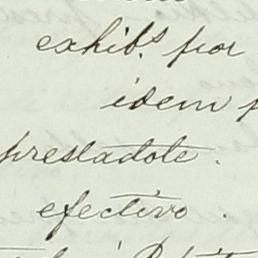 exhib.s por
idem p
prestadote.
efectivo.